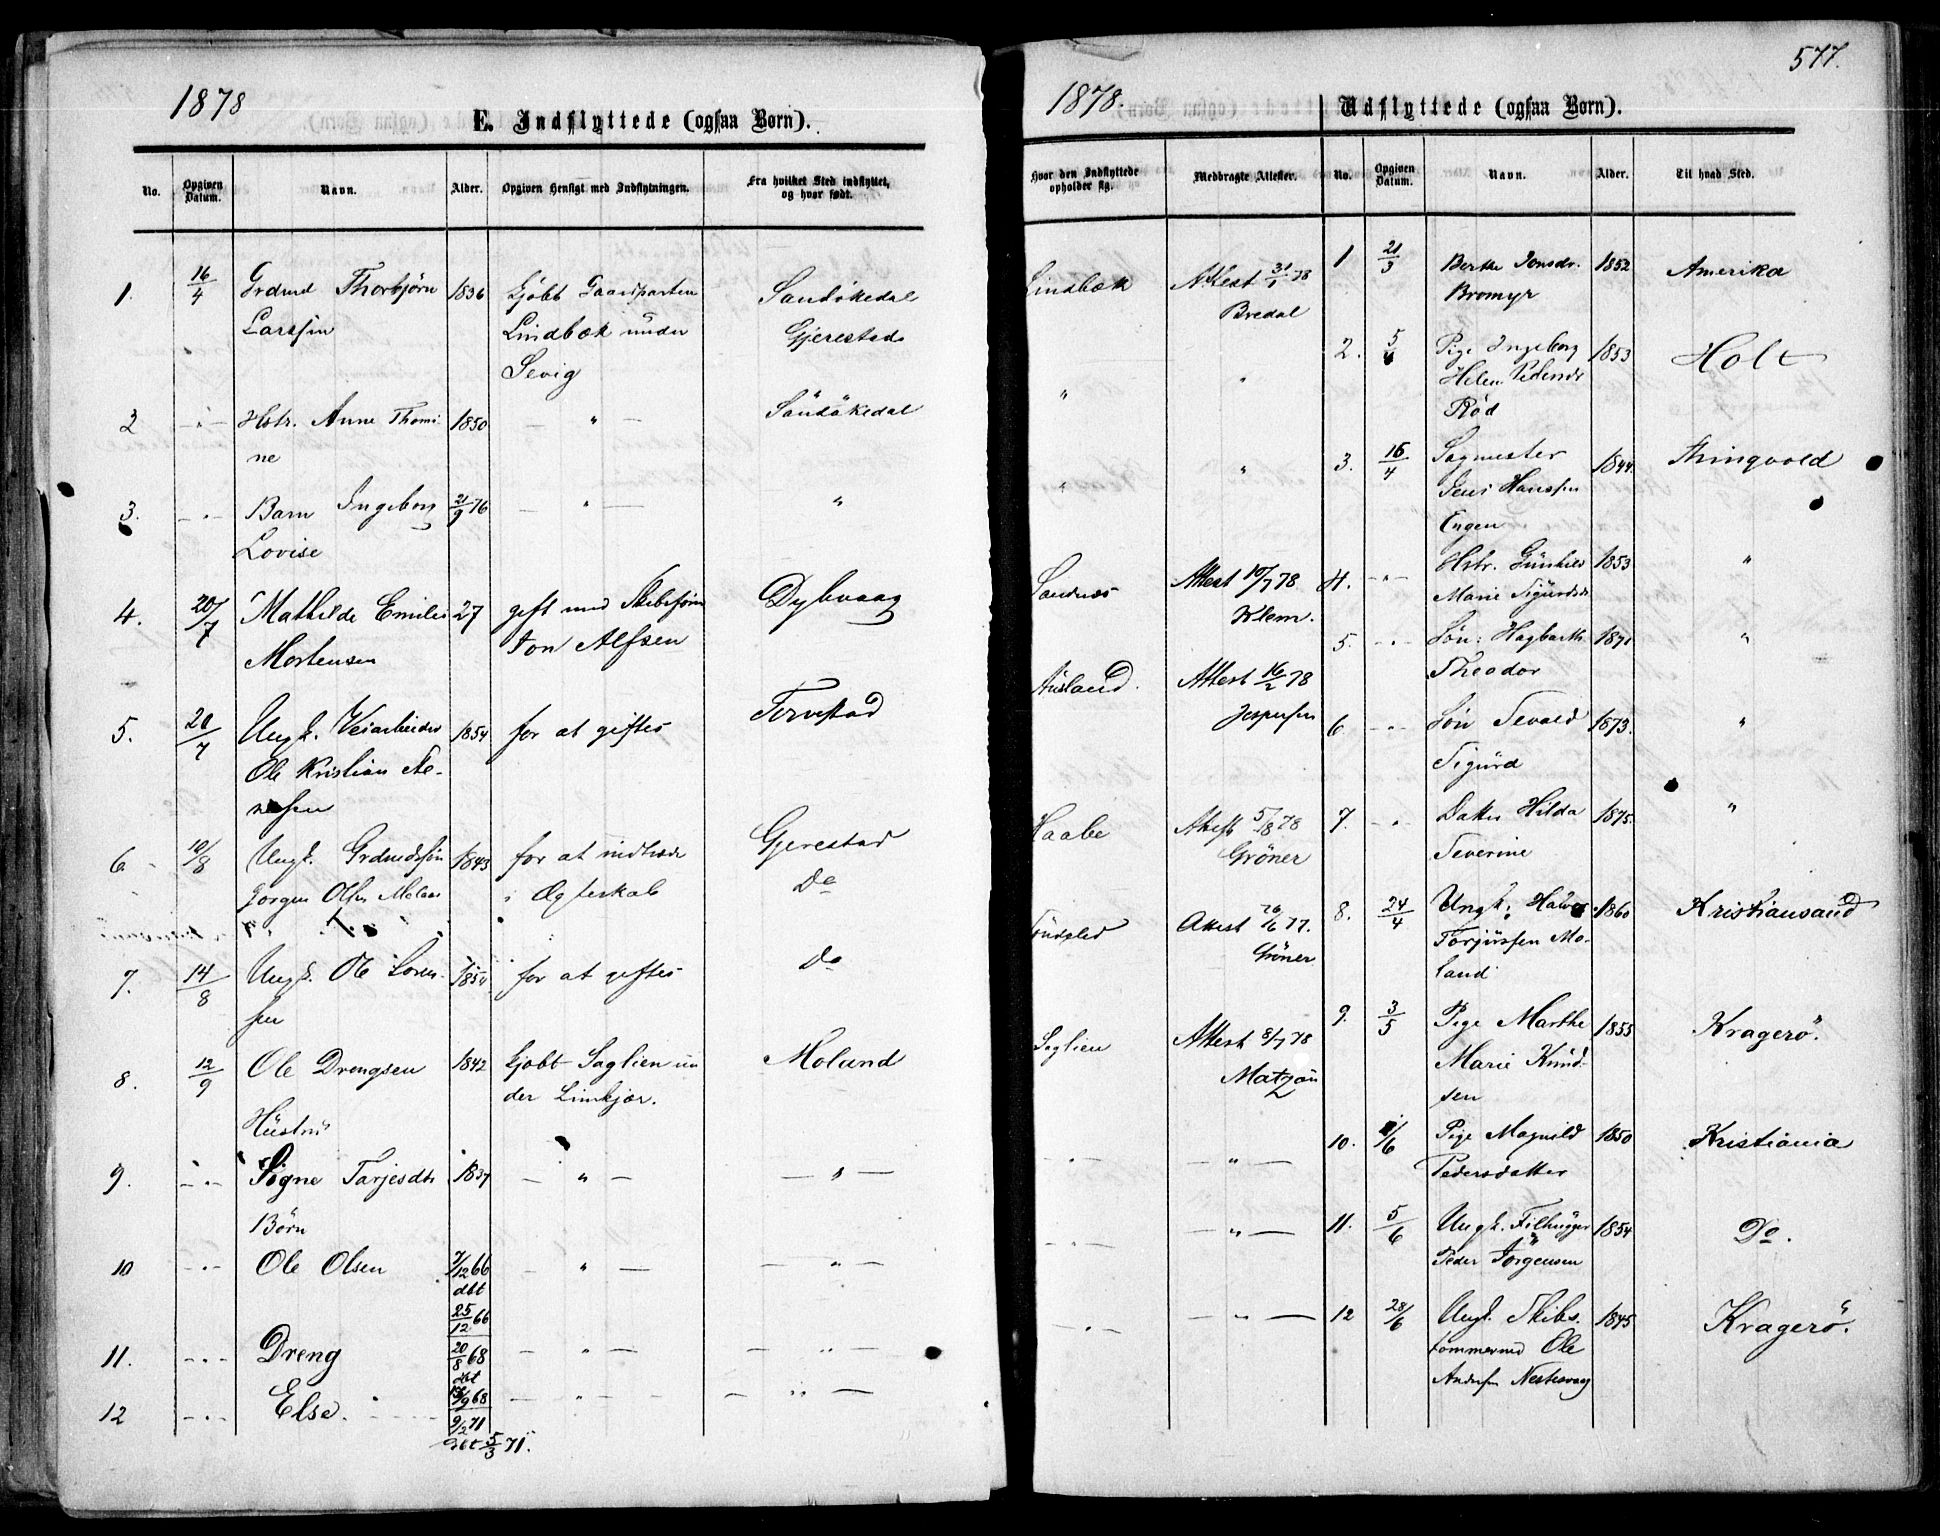 1878
E. Indflyttede (ogsaa Børn).
No.
Opgiven Datum.
Navn.
Alder.
Opgiven Hensigt med Indflytningen.
Fra hvilket Sted indflyttet, og hvor født.
1. 16/4 Grdmd Thorbjørn 1836 kjøbt Gaardparten Sandøkedal
Larssen Lindbæk under Gjerestad
Sevig
2 -"- Hstr. Anne Thomi 1850 - " - Sandøkedal
ne
3. -"- Barn Ingeborg 21/9 76 - " - "
Lovise
4. 20/7 Mathilde Emilie 27 gift med Skibsfører Dybvaag
Mortensen Jon Alfsen
5. 20/7 Ungk. Veiarbeider 1854 for at giftes
Ole Kristian
6 10/8 Ungk. Grdmdssøn 1843 for at indtræde Gjerestad
Jørgen i Ægteskab Do
7. 14/8 Ungk. Ole Soren- 1854 for at giftes Do
sen
8. 12/9 Ole Drengsen 1842 kjøbt Saglien un Moland
der Limkjær.
Hustru
9. -"- Signe Tarjesdtr 1837 - " - - " -
Børn
10 -"- Ole Olsen 7/12 66 - " - - " -
dbt
25/12 66
11. -"- Dreng 20/8 68 - " - - " -
dbt
12 -"- Else. - " - - " -
9/2 71
dbt 5/3 71.
577.
1878.
Udflyttede (ogsaa Børn).
Hvor den Indflyttede opholder sig.
Medbragte Attester.
No.
Opgiven Datum.
Navn.
Alder.
Til hvad Sted.
Lindbæk Attest 31/1 78 1 21/3 Berthe Jonsdr. 1852 Amerika
Bredal Bromyr
2. Pige Ingeborg 1853 Holt
" " Helene Pedersdr
Rød
" " 3. 16/4 Sagmester 1844. Thingvold
Jens Hanssen
Engen
Sandnes Attest 10/7 78 4. -"- Hstr. Gunhild 1853 "
Klem. Marie Sigurdsdr
5. -"- Søn: Hagbarth 1871 "
Theodor
Attest 16/2 78
Jespersen 6 -"- Søn Sevald 1873. "
Sigurd
Haabe Attest 5/8 78 7. " Datter Hilda 1875. "
Grøner Severine
Søndeled Attest 77. 8. 24/4 Ungk. Halvor 1860 Kristiansand
Grøner Torjussen Mo-
land
Saglien Attest 8/7 78 9. 3/5 Pige Marthe 1855 Kragerø.
Matzau Marie Knud-
sen
-"- - " - 10. 1/6 Pige Magnild 1850 Kristiania
Pedersdatter
-"- - " - 11. 5/6 Ungk. Filhugger 1854 Do.
Peder Jørgensen
-"- - " - 12 28/6 Ungk. Skibs- 1845 Kragerø.
tømmermd Ole
Andersen Nestervaag